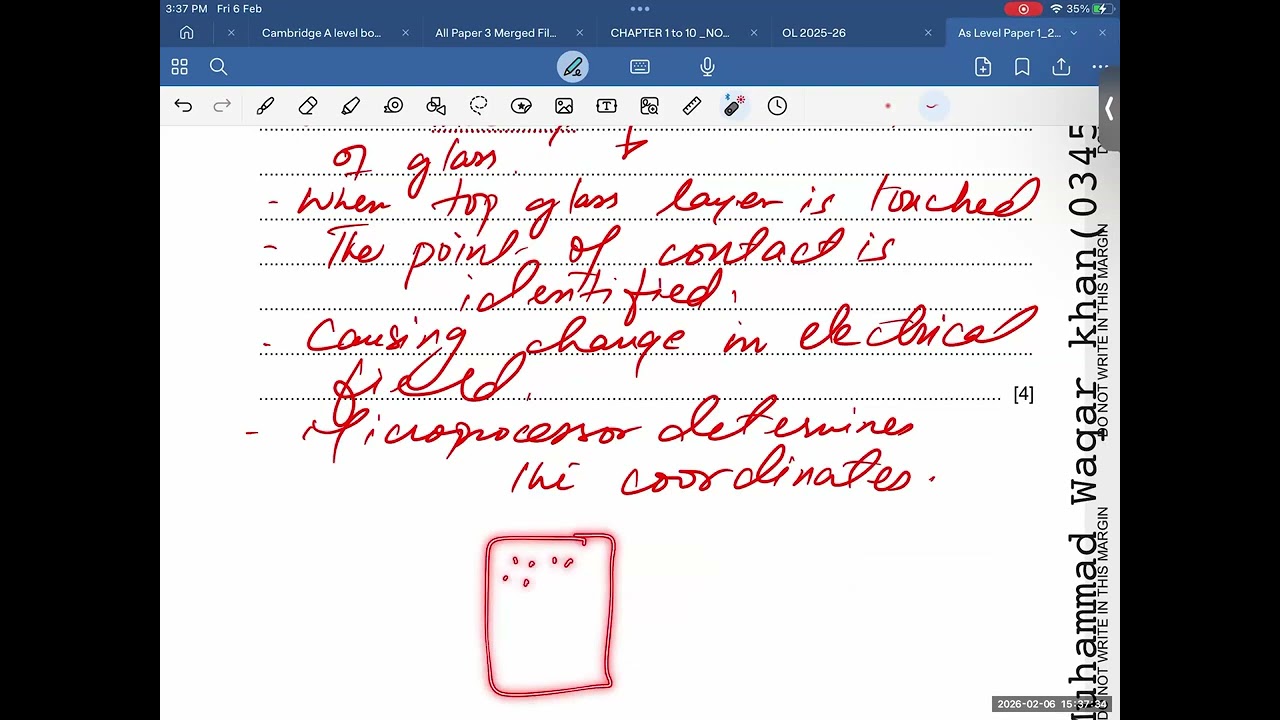 3:37 PM Fri 6 Feb
35%
Cambridge A level bo...
All Paper 3 Merged Fil...
CHAPTER 1 to 10 _NO...
OL 2025-26
As Level Paper 1_2...
of glass.
- When top glass layer is touched
- The point of contact is
identified.
- Causing change in electrical
field.
[4]
- Microprocessor determines
the coordinates.
Muhammad Waqar khan(0345
DO NOT WRITE IN THIS MARGIN
DO NOT WRITE IN THIS MARGIN
2026-02-06 15:37:34